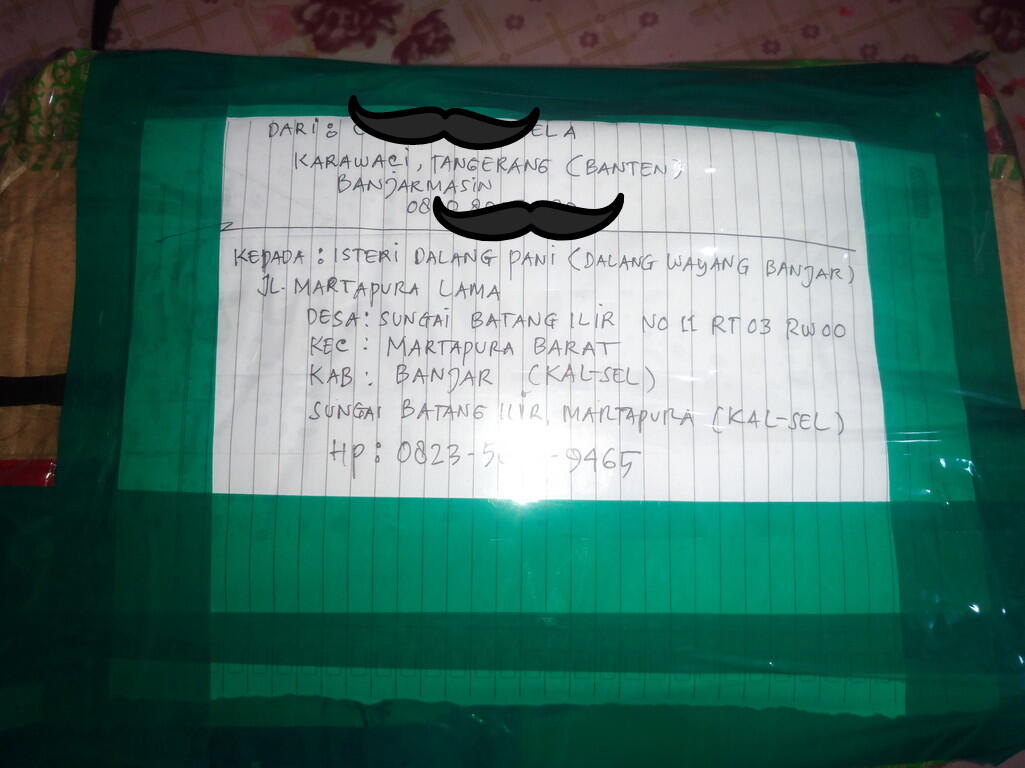 DARI:
KARAWACI, TANGERANG (BANTEN)
BANJARMASIN
KEPADA : ISTERI DALANG PANI (DALANG WAYANG BANJAR)
JL. MARTAPURA LAMA
DESA: SUNGAI BATANG ILIR NO 11 RT 03 RW 00
KEC : MARTAPURA BARAT
KAB : BANJAR (KAL-SEL)
SUNGAI BATANG ILIR, MARTAPURA (KAL-SEL)
HP: 0823-5 -9465